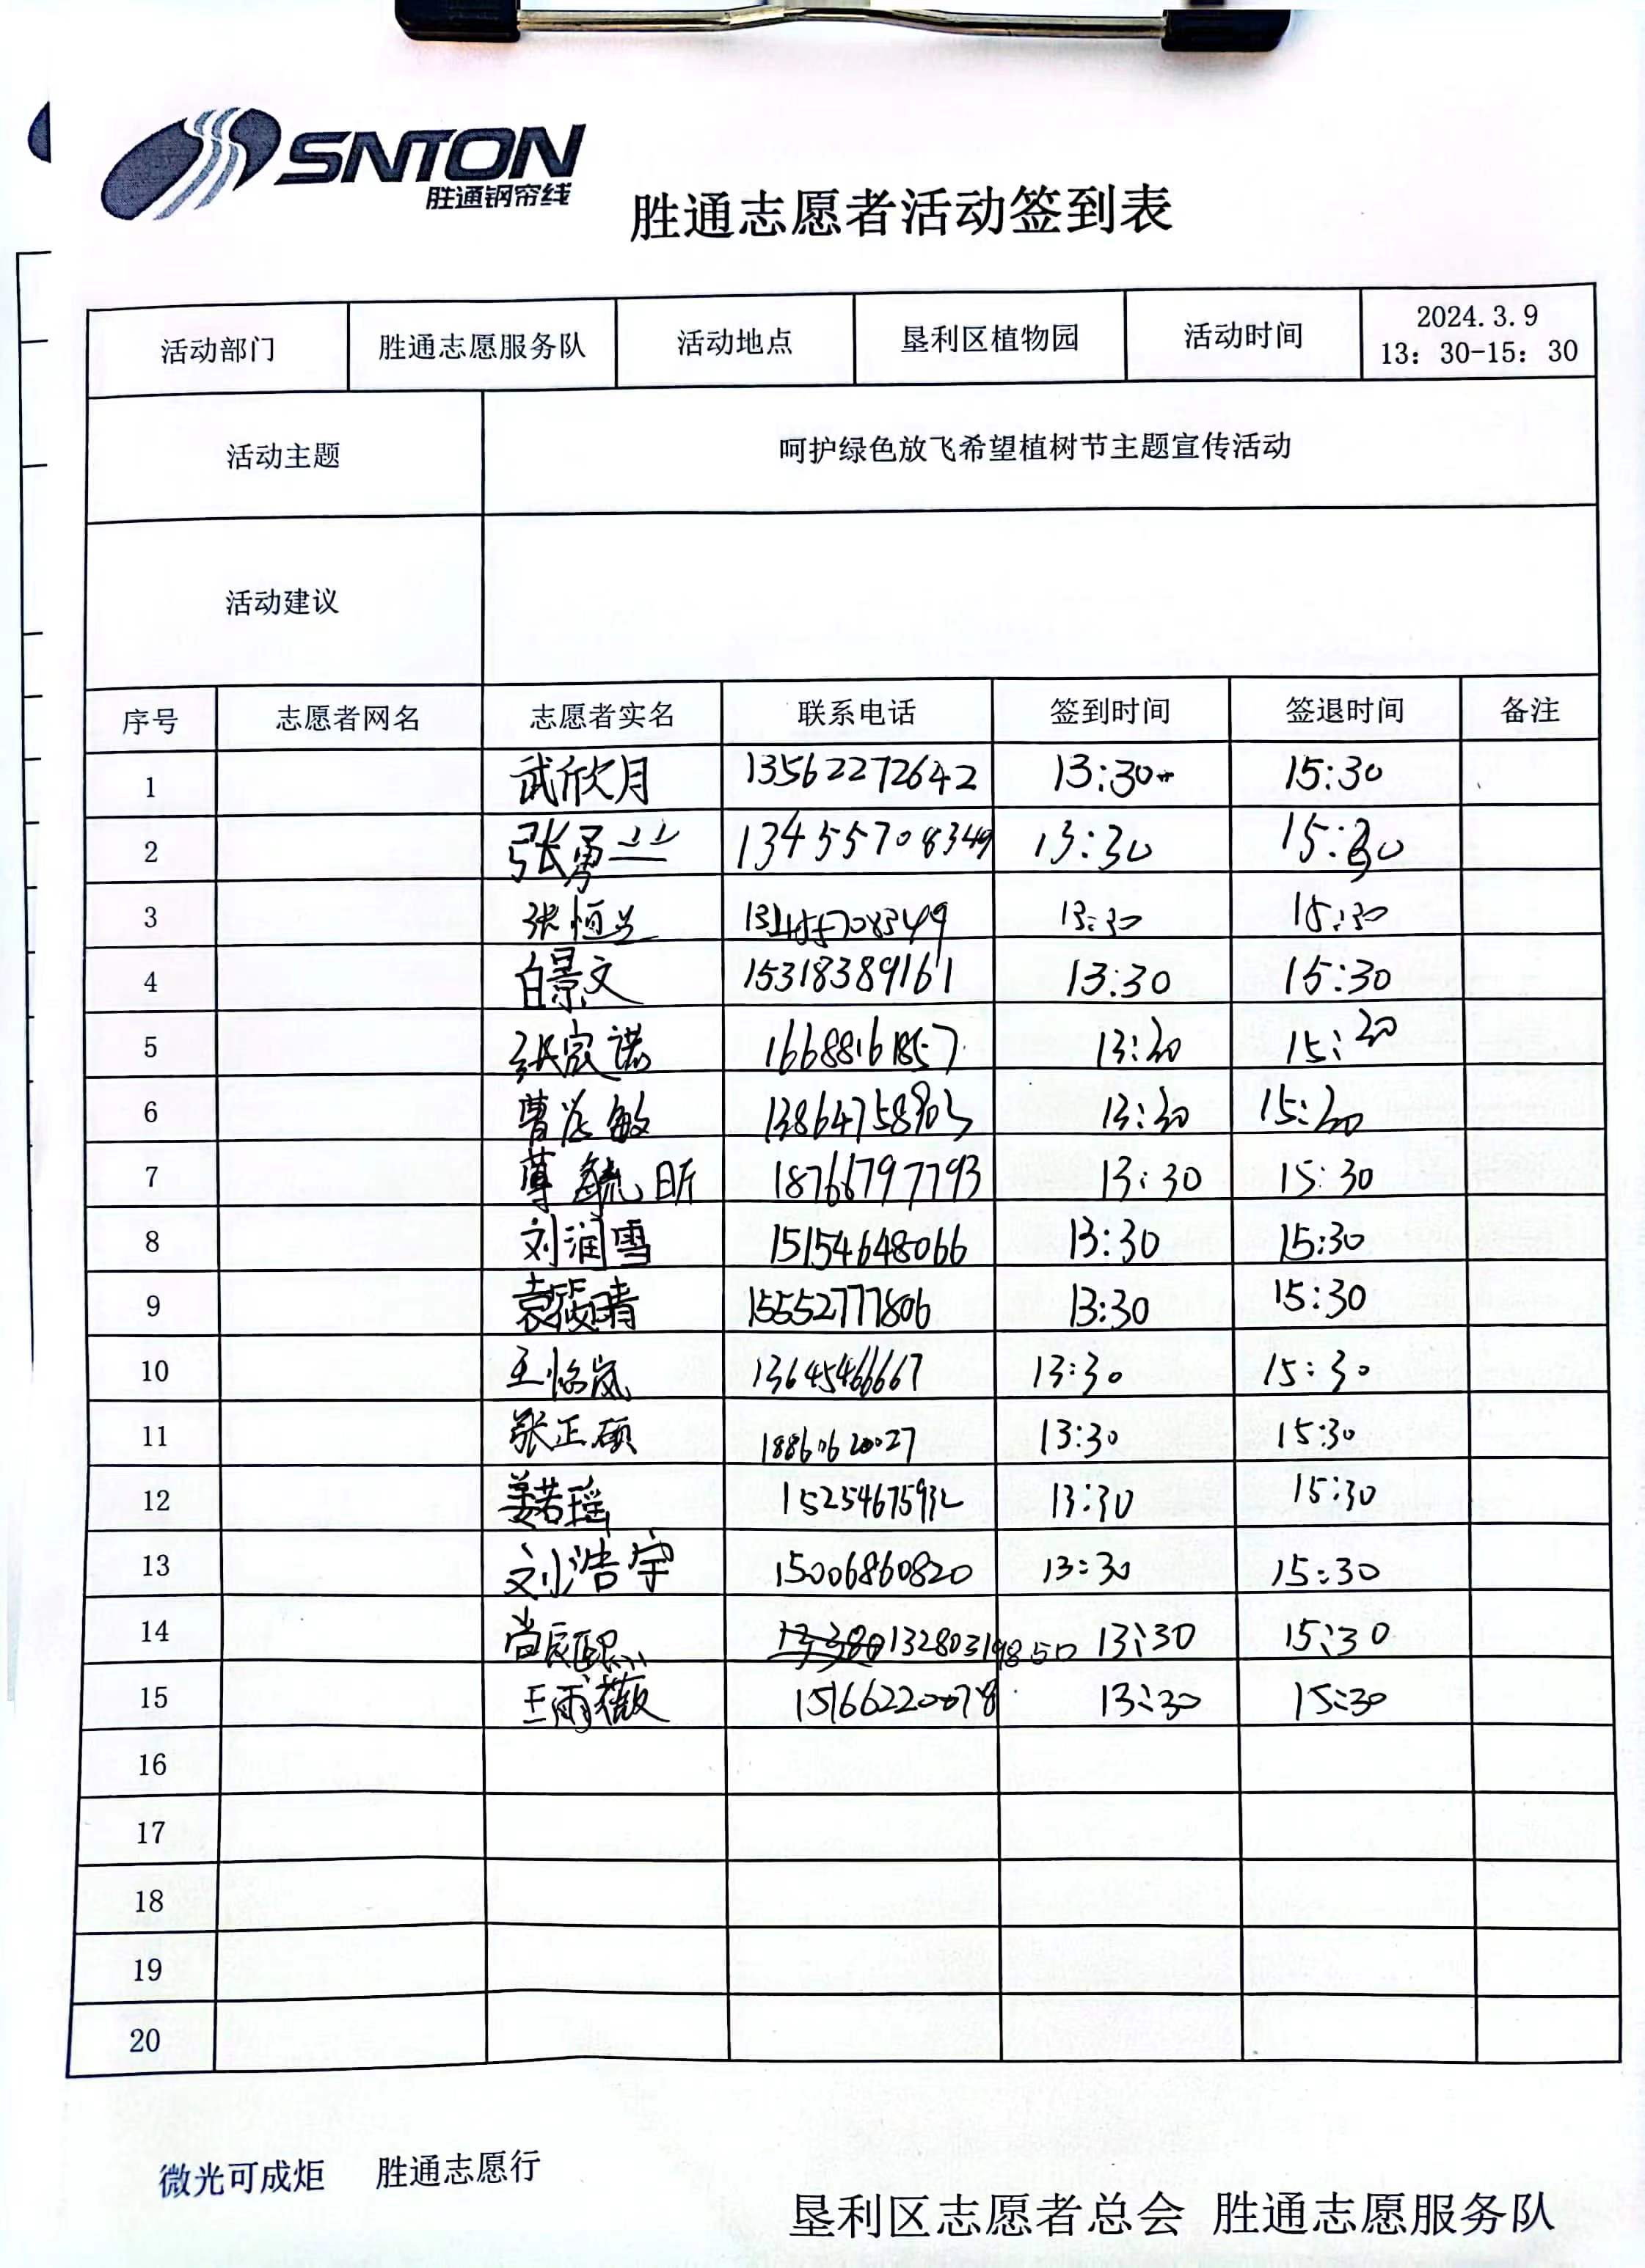 SNTON
胜通钢帘线
胜通志愿者活动签到表
活动部门 胜通志愿服务队 活动地点 垦利区植物园 活动时间 2024.3.9
13：30-15：30
活动主题 呵护绿色放飞希望植树节主题宣传活动
活动建议
序号 志愿者网名 志愿者实名 联系电话 签到时间 签退时间 备注
1 武欣月 13562272642 13:30 15:30
2 张勇兰 13455708349 13:30 15:30
3 张恒兰 13455708349 13:30 15:30
4 白景文 15318389161 13:30 15:30
5 张家诺 16688161857 13:30 15:30
6 13864758903 13:30 15:30
7 18766797793 13:30 15:30
8 刘润雪 15154648066 13:30 15:30
9 袁筱晴 15552777806 13:30 15:30
10 13645466667 13:30 15:30
11 张正硕 18860620027 13:30 15:30
12 姜若瑶 15254675932 13:30 15:30
13 刘浩宇 15006860820 13:30 15:30
14 13280319850 13:30 15:30
15 王雨薇 15166220078 13:30 15:30
16
17
18
19
20
微光可成炬 胜通志愿行
垦利区志愿者总会 胜通志愿服务队